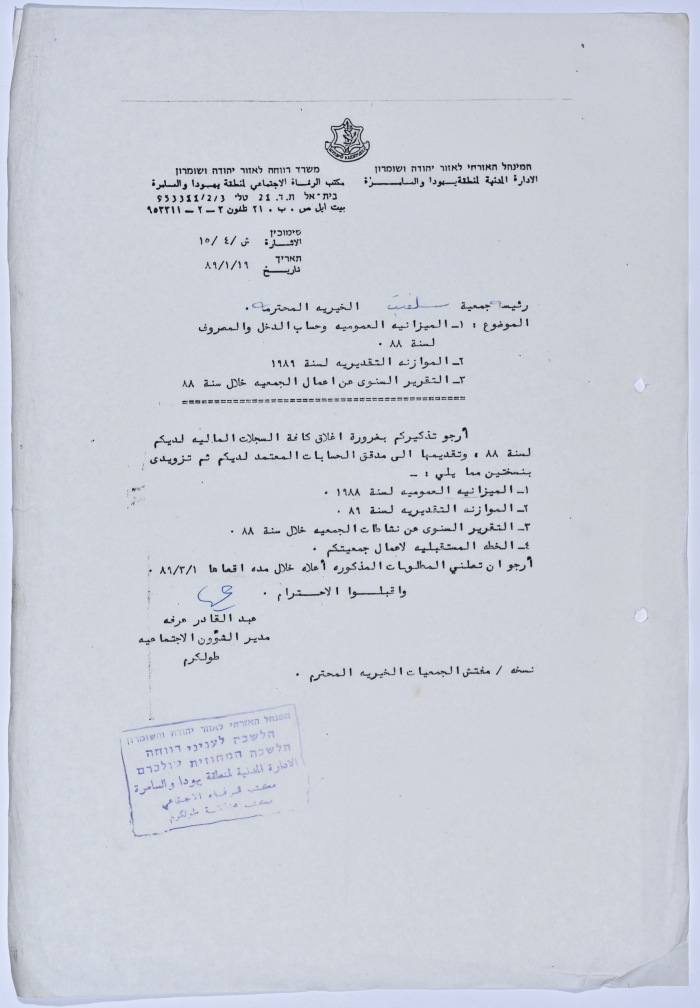 המינהל האזרחי לאזור יהודה ושומרון
الادارة المدنية لمنطقة يهودا والسامرة
משרד רווחה לאזור יהודה ושומרון
مكتب الرفاه الاجتماعي لمنطقة يهودا والسامرة
בית-אל ת.ד. 21 טל׳ 953311/2/3
بيت ايل ص . ب . ٢١ تلفون ٣ - ٢ - ٩٥٣٣١١
סימוכין
الاشارة ش / ٤ / ١٥
תאריך
تاريخ ٨٩/١/١٩
رئيسة جمعية سلفيت الخيريه المحترمه .
الموضوع : ١- الميزانيه العموميه وحساب الدخل والمصروف
لسنة ٨٨ .
٢- الموازنه التقديريه لسنة ١٩٨٩
٣- التقرير السنوى عن اعمال الجمعيه خلال سنة ٨٨
========================================
أرجو تذكيركم بضرورة اغلاق كافة السجلات الماليه لديكم
لسنة ٨٨ ، وتقديمها الى مدقق الحسابات المعتمد لديكم ثم تزويدى
بنسختين مما يلي : -
١- الميزانيه العموميه لسنة ١٩٨٨ .
٢- الموازنه التقديريه لسنة ٨٩ .
٣- التقرير السنوى عن نشاطات الجمعيه خلال سنة ٨٨ .
٤- الخطه المستقبليه لاعمال جمعيتكم .
أرجو ان تصلني المطلوبات المذكوره أعلاه خلال مده اقصاها ٨٩/٣/١ .
واقبلوا الاحترام .
عبد القادر عرفه
مدير الشؤون الاجتماعيه
طولكرم
نسخه / مفتش الجمعيات الخيريه المحترم .
המנהל האזרחי לאזור יהודה והשומרון
הלשכה לעניני רווחה
הלשכה המחוזית טולכרם
الادارة المدنية لمنطقة يهودا والسامرة
مكتب الرفاه الاجتماعي
مكتب طولكرم